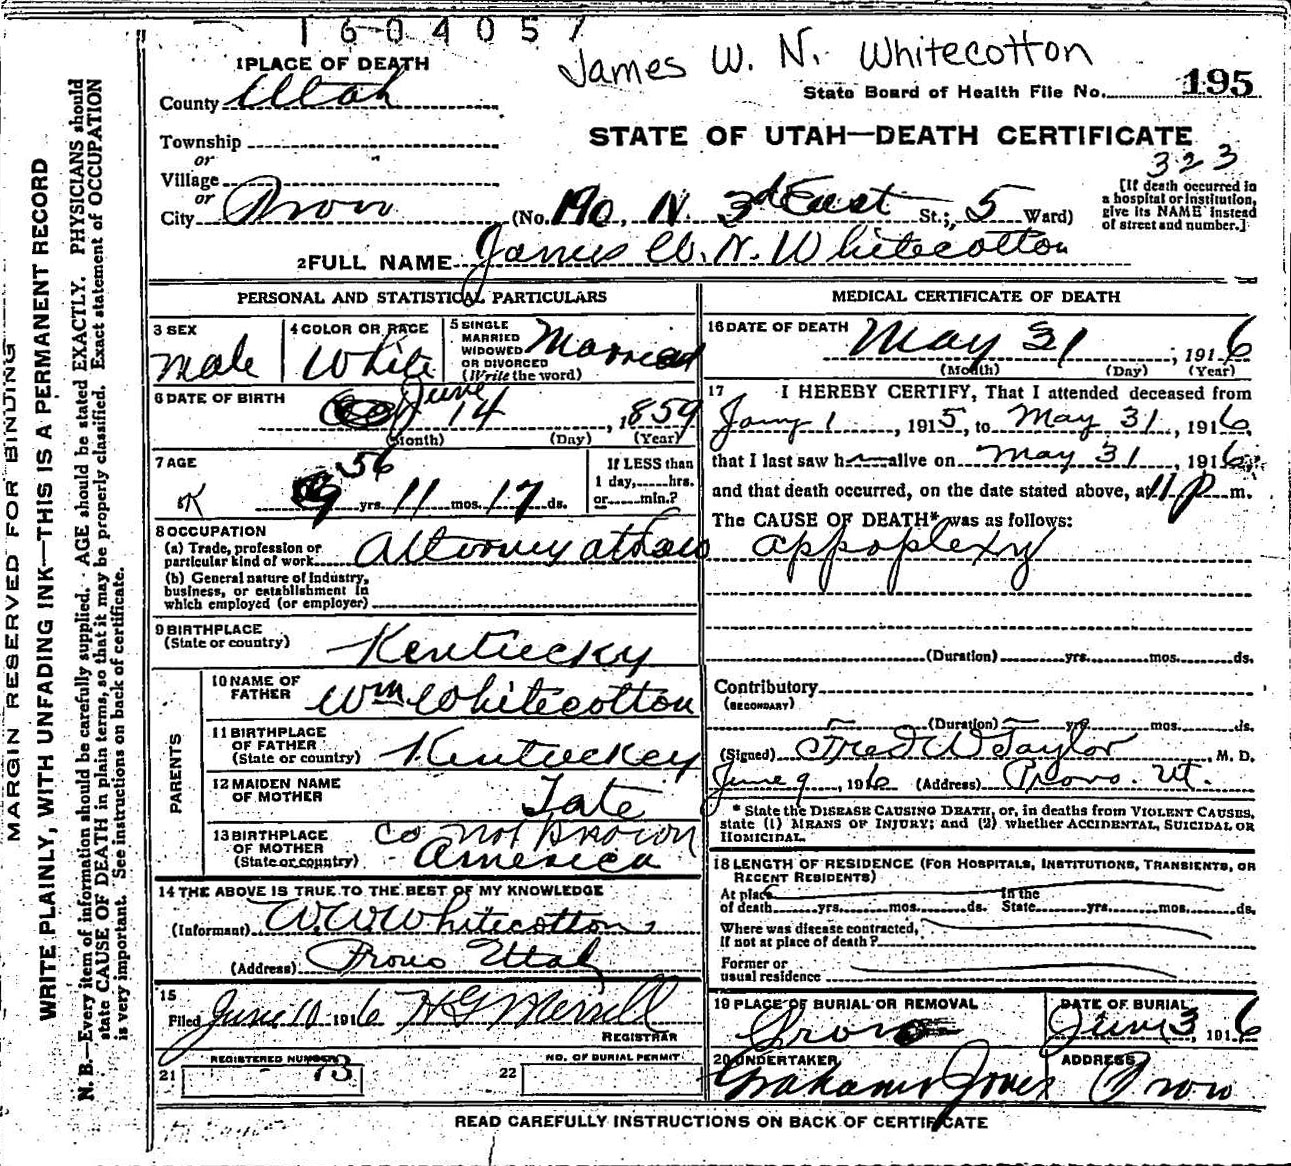 1604057
James W. N. Whitecotton
State Board of Health File No. 195
STATE OF UTAH—DEATH CERTIFICATE
323
[If death occurred in
a hospital or institution,
give its NAME instead
of street and number.]
1 PLACE OF DEATH
County Utah
Township
or
Village
or
City Provo (No. 190, N. 3d East St.; 5 Ward)
2 FULL NAME James W. N. Whitecotton
PERSONAL AND STATISTICAL PARTICULARS
3 SEX
male
4 COLOR OR RACE
White
5 SINGLE
MARRIED
WIDOWED
OR DIVORCED
(Write the word)
Married
6 DATE OF BIRTH
June 14, 1859
(Month) (Day) (Year)
7 AGE
56
yrs. 11 mos. 17 ds.
If LESS than
1 day, hrs.
or min.?
8 OCCUPATION
(a) Trade, profession or
particular kind of work Attorney at Law
(b) General nature of industry,
business, or establishment in
which employed (or employer)
9 BIRTHPLACE
(State or country)
Kentucky
PARENTS
10 NAME OF
FATHER
Wm Whitecotton
11 BIRTHPLACE
OF FATHER
(State or country)
Kentuckey
12 MAIDEN NAME
OF MOTHER
Tate
13 BIRTHPLACE
OF MOTHER
(State or country)
not known
America
14 THE ABOVE IS TRUE TO THE BEST OF MY KNOWLEDGE
(Informant) W. W. Whitecotton
(Address) Provo Utah
15
Filed June 10 1916 H G Merrill
REGISTRAR
REGISTERED NUMBER
21 73
NO. OF BURIAL PERMIT
22
MEDICAL CERTIFICATE OF DEATH
16 DATE OF DEATH
May 31, 1916
(Month) (Day) (Year)
17 I HEREBY CERTIFY, That I attended deceased from
Jany 1, 1915, to May 31, 1916,
that I last saw h alive on May 31, 1916,
and that death occurred, on the date stated above, at 11 p m.
The CAUSE OF DEATH* was as follows:
appoplexy
(Duration) yrs. mos. ds.
Contributory
(SECONDARY)
(Duration) yrs. mos. ds.
(Signed) Fred W Taylor, M. D.
June 9, 1916 (Address) Provo. Ut.
* State the DISEASE CAUSING DEATH, or, in deaths from VIOLENT CAUSES,
state (1) MEANS OF INJURY; and (2) whether ACCIDENTAL, SUICIDAL OR
HOMICIDAL.
18 LENGTH OF RESIDENCE (FOR HOSPITALS, INSTITUTIONS, TRANSIENTS, OR
RECENT RESIDENTS)
At place In the
of death yrs. mos. ds. State yrs. mos. ds.
Where was disease contracted,
if not at place of death?
Former or
usual residence
19 PLACE OF BURIAL OR REMOVAL
Provo
DATE OF BURIAL
June 3, 1916
20 UNDERTAKER
Jones
ADDRESS
Provo
READ CAREFULLY INSTRUCTIONS ON BACK OF CERTIFICATE
MARGIN RESERVED FOR BINDING
WRITE PLAINLY, WITH UNFADING INK—THIS IS A PERMANENT RECORD
N. B.—Every item of information should be carefully supplied. AGE should be stated EXACTLY. PHYSICIANS should
state CAUSE OF DEATH in plain terms, so that it may be properly classified. Exact statement of OCCUPATION
is very important. See instructions on back of certificate.